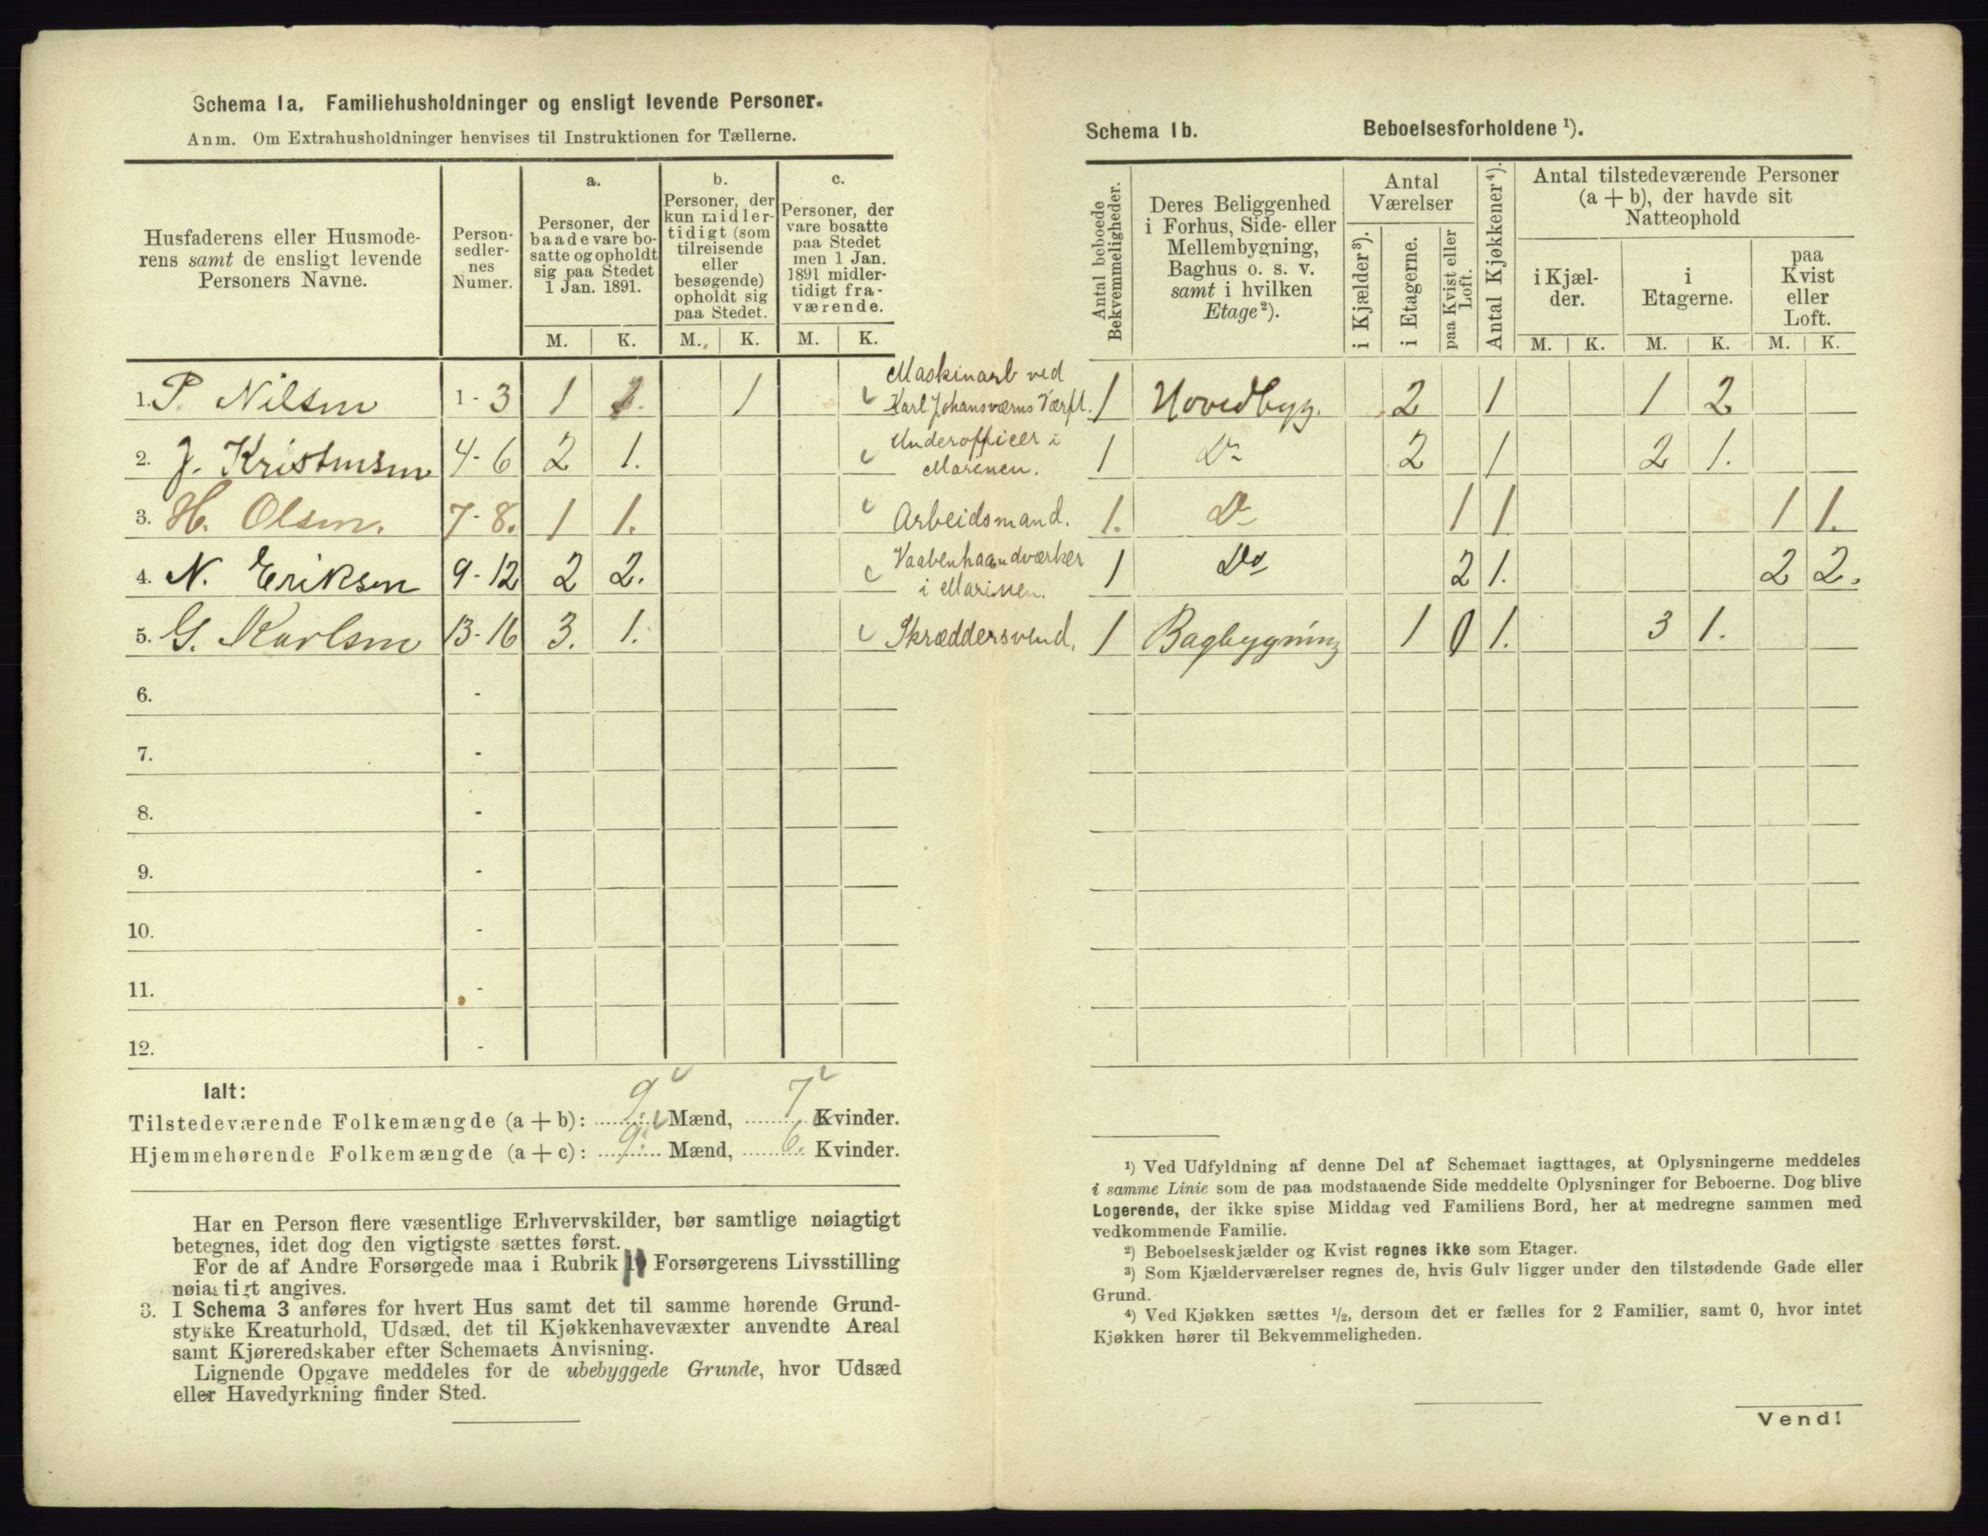 Schema 1a. Familiehusholdninger og ensligt levende Personer.
Anm. Om Extrahusholdninger henvises til Instruktionen for Tællerne.
Husfaderens eller Husmode-
rens samt de ensligt levende
Personers Navne.
Person-
sedler-
nes
Numer.
a.
Personer, der
baade vare bo-
satte og opholdt
sig paa Stedet
1 Jan. 1891.
b.
Personer, der
kun midler-
tidigt (som
tilreisende
eller
besøgende)
opholdt sig
paa Stedet.
c.
Personer, der
vare bosatte
paa Stedet
men 1 Jan.
1891 midler-
tidigt fra-
værende.
M. K. M. K. M. K.
1. P. Nilsen 1 - 3 1 1. 1 Maskinarb ved
Karl Johansværns Værft.
2. J. Kristensen 4 - 6 2 1. Underofficer i
Marinen.
3. H. Olsen. 7 - 8. 1 1. Arbeidsmand.
4. N. Eriksen 9 - 12 2 2. Vaabenhaandværker
i Marinen.
5. G. Karlsen 13 - 16 3. 1. Skræddersvend.
6. -
7. -
8. -
9. -
10. -
11. -
12. -
Ialt:
Tilstedeværende Folkemængde (a + b): 9. Mænd, 7 Kvinder.
Hjemmehørende Folkemængde (a + c): 9. Mænd, 6. Kvinder.
Har en Person flere væsentlige Erhvervskilder, bør samtlige nøiagtigt
betegnes, idet dog den vigtigste sættes først.
For de af Andre Forsørgede maa i Rubrik 10 Forsørgerens Livsstilling
nøiagtigt angives.
3. I Schema 3 anføres for hvert Hus samt det til samme hørende Grund-
stykke Kreaturhold, Udsæd, det til Kjøkkenhavevæxter anvendte Areal
samt Kjøreredskaber efter Schemaets Anvisning.
Lignende Opgave meddeles for de ubebyggede Grunde, hvor Udsæd
eller Havedyrkning finder Sted.
Schema 1b. Beboelsesforholdene ¹).
Antal beboede
Bekvemmeligheder.
Deres Beliggenhed
i Forhus, Side- eller
Mellembygning,
Baghus o. s. v.
samt i hvilken
Etage ²).
Antal
Værelser
i Kjælder ³).
i Etagerne.
paa Kvist eller
Loft.
Antal Kjøkkener ⁴).
Antal tilstedeværende Personer
(a + b), der havde sit
Natteophold
i Kjæl-
der.
i
Etagerne.
paa
Kvist
eller
Loft.
M. K. M. K. M. K.
1 Hovedbyg. 2 1 1 2
1 Do 2 1 2 1.
1. Do 1 1 1 1.
1 Do 2 1. 2 2.
1 Bagbygning 1 0 1. 3 1.
¹) Ved Udfyldning af denne Del af Schemaet iagttages, at Oplysningerne meddeles
i samme Linie som de paa modstaaende Side meddelte Oplysninger for Beboerne. Dog blive
Logerende, der ikke spise Middag ved Familiens Bord, her at medregne sammen med
vedkommende Familie.
²) Beboelseskjælder og Kvist regnes ikke som Etager.
³) Som Kjælderværelser regnes de, hvis Gulv ligger under den tilstødende Gade eller
Grund.
⁴) Ved Kjøkken sættes ½, dersom det er fælles for 2 Familier, samt 0, hvor intet
Kjøkken hører til Bekvemmeligheden.
Vend!